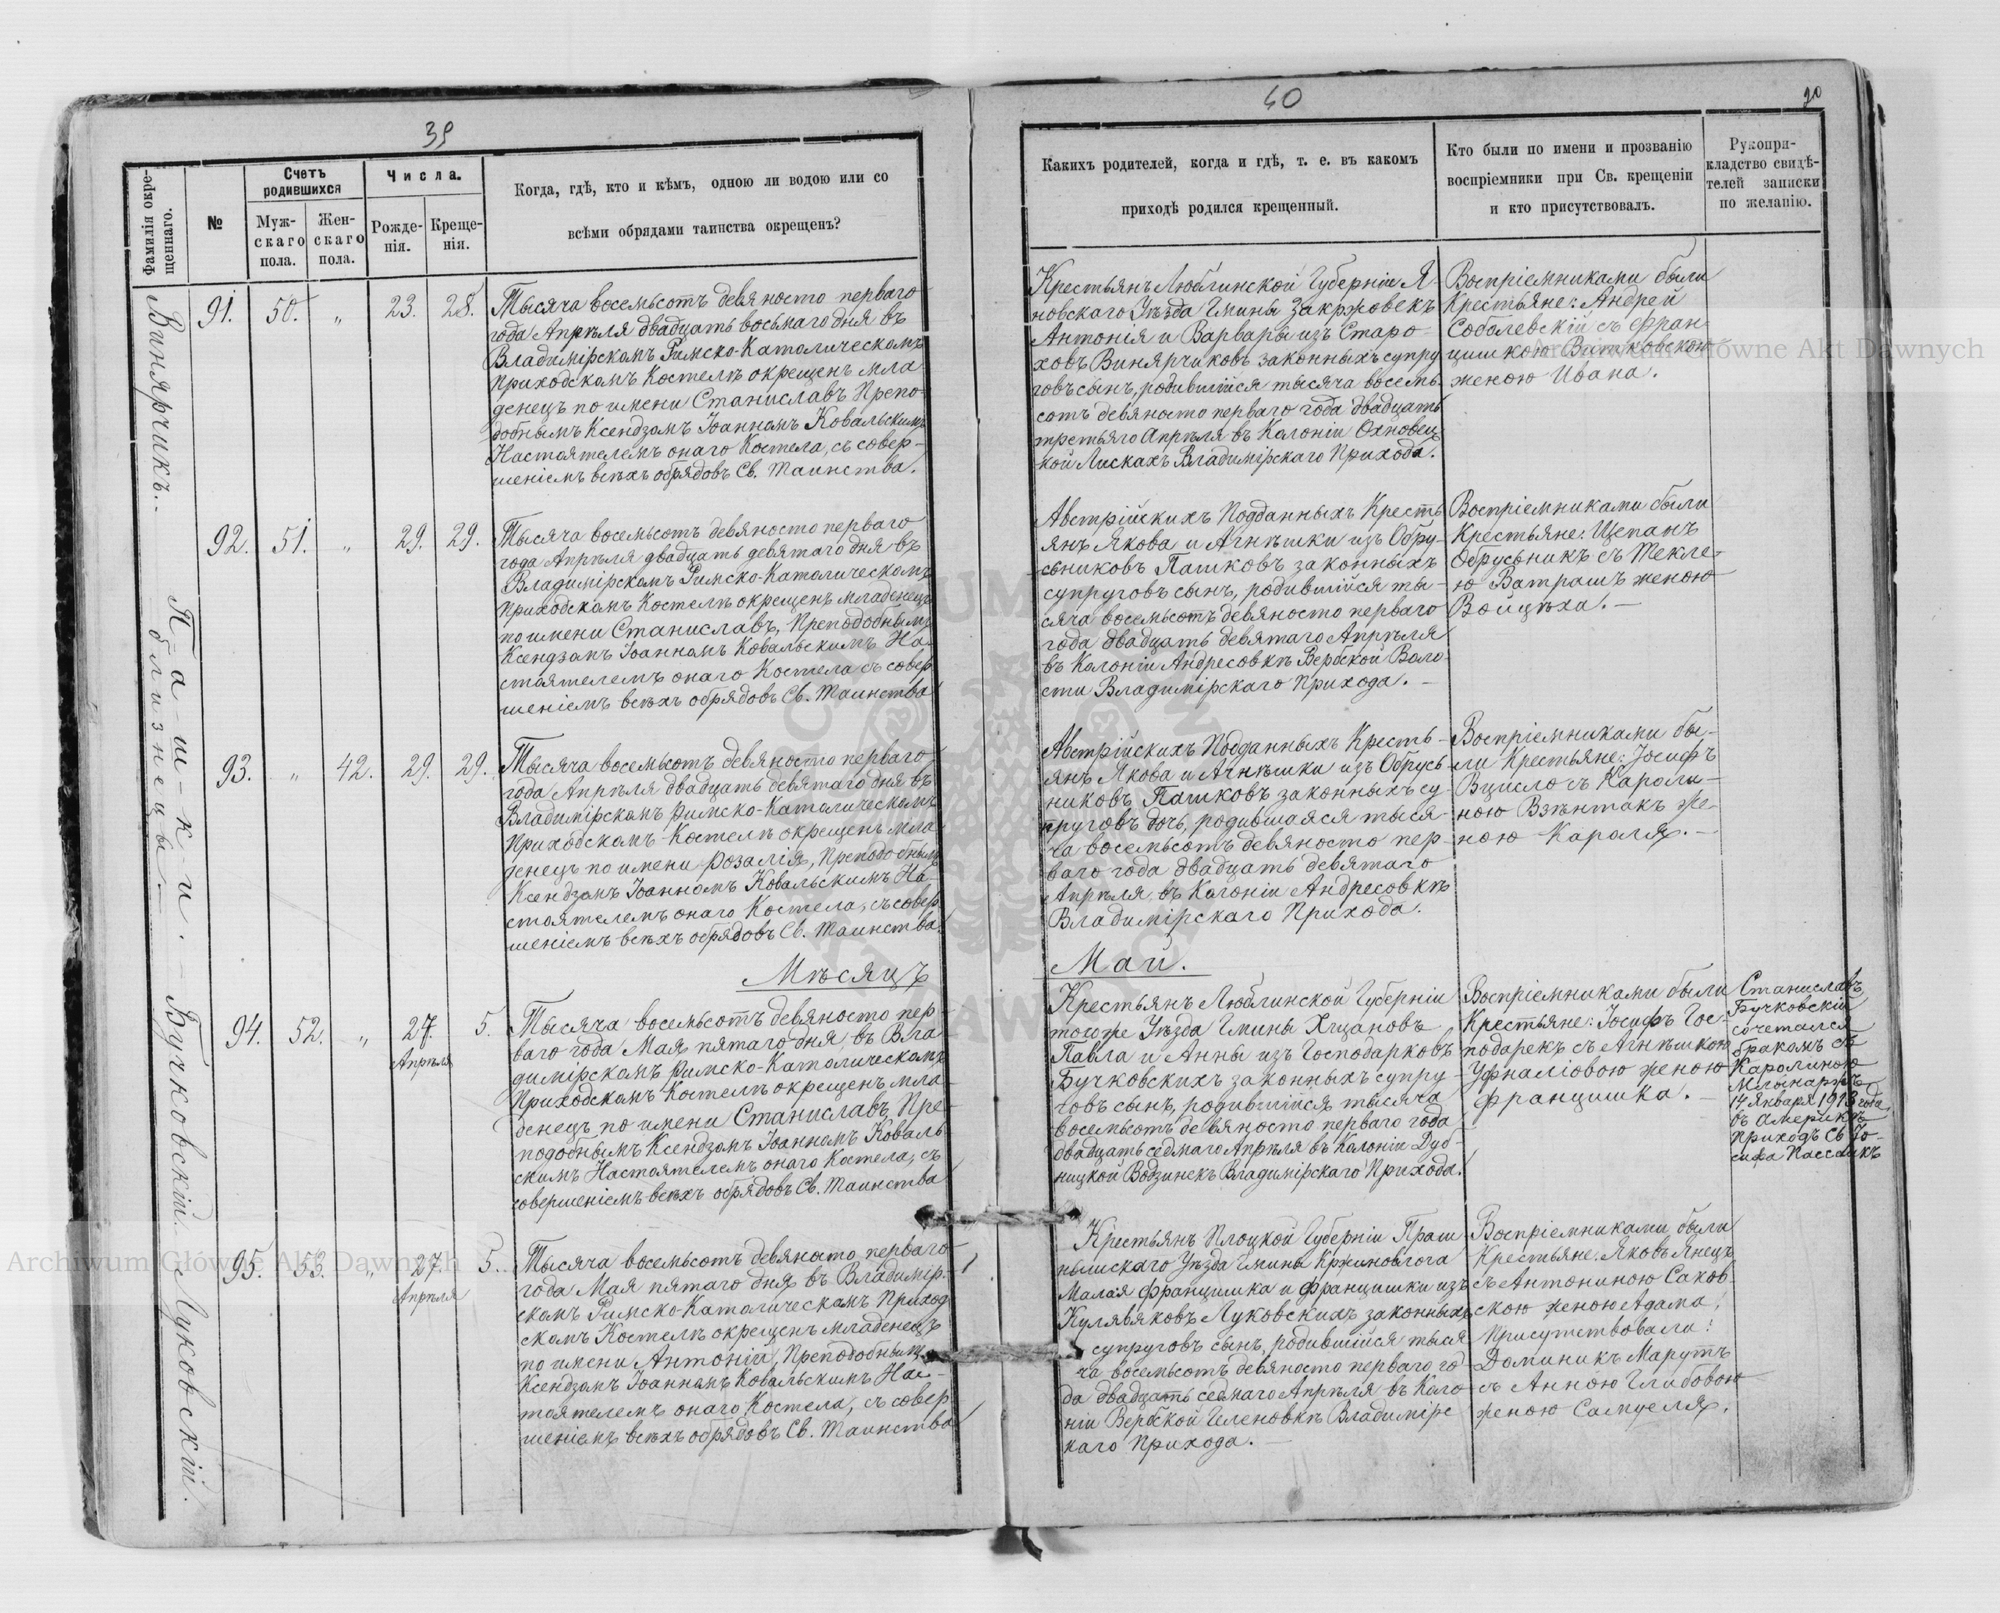 39
Фамилія окрещеннаго.
№
Счетъ родившихся
Мужскаго пола.
Женскаго пола.
Числа.
Рожденія.
Крещенія.
Когда, гдѣ, кто и кѣмъ, одною ли водою или со
всѣми обрядами таинства окрещенъ?
Винярчикъ.
91. 50. „ 23. 28.
Тысяча восемьсотъ девяносто перваго
года Апрѣля двадцать восьмаго дня въ
Владимірскомъ Римско-Католическомъ
Приходскомъ Костелѣ окрещенъ мла-
денецъ по имени Станиславъ Препо-
добнымъ Ксендзомъ Іоанномъ Ковальскимъ
Настоятелемъ онаго Костела, съ совер-
шеніемъ всѣхъ обрядовъ Св. Таинства.
Па-ш-к-и.
близнецы
92. 51. „ 29. 29.
Тысяча восемьсотъ девяносто перваго
года Апрѣля двадцать девятаго дня въ
Владимірскомъ Римско-Католическомъ
Приходскомъ Костелѣ окрещенъ младенецъ
по имени Станиславъ, Преподобнымъ
Ксендзомъ Іоанномъ Ковальскимъ На-
стоятелемъ онаго Костела съ совер
шеніемъ всѣхъ обрядовъ Св. Таинства
93. „ 42. 29. 29.
Тысяча восемьсотъ девяносто перваго
года Апрѣля двадцать девятаго дня въ
Владимірскомъ Римско-Католическомъ
Приходскомъ Костелѣ окрещенъ мла
денецъ по имени Розалія, Преподобнымъ
Ксендзомъ Іоанномъ Ковальскимъ На-
стоятелемъ онаго Костела, съ совер
шеніемъ всѣхъ обрядовъ Св. Таинства.
Мѣсяцъ
Бучковскій.
94. 52. „ 27. Апрѣля 5.
Тысяча восемьсотъ девяносто пер-
ваго года Мая пятаго дня въ Вла
димірскомъ Римско-Католическомъ
Приходскомъ Костелѣ окрещенъ мла-
денецъ по имени Станиславъ, Пре-
подобнымъ Ксендзомъ Іоанномъ Коваль
скимъ Настоятелемъ онаго Костела, съ
совершеніемъ всѣхъ обрядовъ Св. Таинства
Луковскій.
95. 53. „ 27. Апрѣля 5.
Тысяча восемьсотъ девяносто перваго
года Мая пятаго дня въ Владимір-
скомъ Римско-Католическомъ Приход
скомъ Костелѣ окрещенъ младенецъ
по имени Антоній, Преподобнымъ
Ксендзомъ Іоанномъ Ковальскимъ На-
тоятелемъ онаго Костела, съ совер
шеніемъ всѣхъ обрядовъ Св. Таинства
40
20
Какихъ родителей, когда и гдѣ, т. е. въ какомъ
приходѣ родился крещенный.
Кто были по имени и прозванію
воспріемники при Св. крещеніи
и кто присутствовалъ.
Рукопри-
кладство свидѣ-
телей записки
по желанію.
Крестьянъ Люблинской Губерніи Я-
новскаго Уѣзда Гмины Закржовекъ
Антонія и Варвары изъ Старо-
ховъ Винярчиковъ законныхъ супру
говъ сынъ, родившійся тысяча восемь
сотъ девяносто перваго года двадцать
третьяго Апрѣля въ Колоніи Охновец
кой Лискахъ Владимірскаго Прихода.
Воспріемниками были
Крестьяне: Андрей
Соболевскій съ Фран-
цишкою Витковскою
женою Ивана.
Австрійскихъ Подданныхъ Кресть
янъ Якова и Агнѣшки изъ Обру-
сьниковъ Пашковъ законныхъ
супруговъ сынъ, родившійся ты-
сяча восемьсотъ девяносто перваго
года двадцать девятаго Апрѣля
въ Колоніи Андресовкѣ Вербской Воло-
сти Владимірскаго Прихода. -
Воспріемниками были
Крестьяне: Щепанъ
Обрусьникъ съ Текле-
ю Ватрашъ женою
Войцѣха. -
Австрійскихъ Подданныхъ Кресть-
янъ Якова и Агнѣшки изъ Обрусь
никовъ Пашковъ законныхъ су-
пруговъ дочь, родившаяся тыся-
ча восемьсотъ девяносто пер-
ваго года двадцать девятаго
Апрѣля въ Колоніи Андресовкѣ
Владимірскаго Прихода.
Воспріемниками бы-
ли Крестьяне: Іосифъ
Вцисло съ Кароли-
ною Взѣнтакъ же-
ною Кароля. -
Май.
Крестьянъ Люблинской Губерніи
того же Уѣзда Гмины Хщановъ
Павла и Анны изъ Господарковъ
Бучковскихъ законныхъ супру-
говъ сынъ, родившійся тысяча
восемьсотъ девяносто перваго года
двадцать седмаго Апрѣля въ Колоніи Дуб-
ницкой Водзинекъ Владимірскаго Прихода.
Воспріемниками были
Крестьяне: Іосифъ Гос-
подарекъ съ Агнѣшкою
Уфналіовою женою
Францишка. -
Станиславъ
Бучковскій
сочетался
бракомъ съ
Каролиною
14 Января 1913 года
въ Америкѣ
приходъ Св. Іо-
сифа Пассаикъ
Крестьянъ Плоцкой Губерніи Праш
нышскаго Уѣзда Гмины Кржиновлога
Малая Францишка и Францишки изъ
Кулявяковъ Луковскихъ законныхъ
супруговъ сынъ, родившійся тыся
ча восемьсотъ девяносто перваго го-
да двадцать седмаго Апрѣля въ Коло
ніи Вербской Геленовкѣ Владимірс
каго Прихода. -
Воспріемниками были
Крестьяне: Яковъ Янецъ
съ Антониною Саков-
скою женою Адама,
Присутствовали:
Доминикъ Марутъ
съ Анною Глибовою
женою Самуеля.
Archiwum Główne Akt Dawnych
Archiwum Główne Akt Dawnych